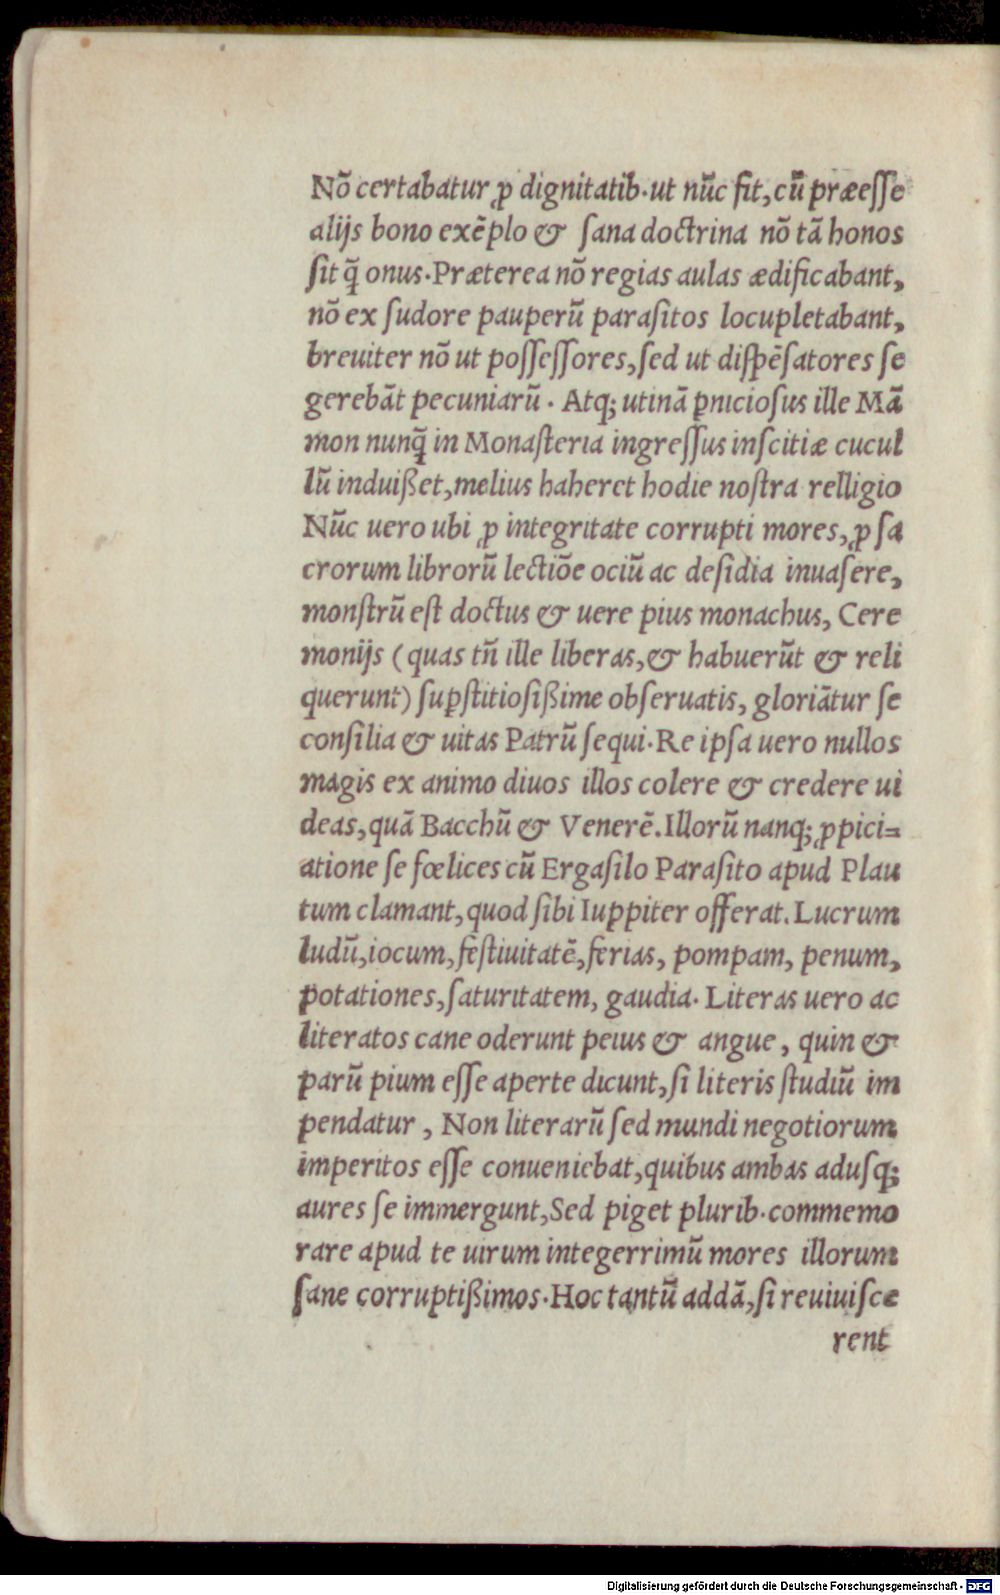 Nõ certabatur ꝓ dignitatib·ut nũc fit,cũ præeſſe
alijs bono exẽplo & ſana doctrina nõ tã honos
ſit q̃ onus·Præterea nõ regias aulas ædificabant,
nõ ex ſudore pauperũ paraſitos locupletabant,
breuiter nõ ut poſſeſſores,ſed ut diſpẽſatores ſe
gerebãt pecuniarũ · Atq; utinã ꝑnicioſus ille Mã
mon nunq̃ in Monaſteria ingreſſus inſcitiæ cucul
lũ induißet,melius haberet hodie noſtra relligio
Nũc uero ubi ꝓ integritate corrupti mores,ꝓ ſa
crorum librorũ lectiõe ociũ ac deſidia inuaſere,
monſtrũ eſt doctus & uere pius monachus, Cere
monijs (quas tñ ille liberas,& habuerũt & reli
querunt) ſuꝑſtitioſißime obſeruatis, gloriãtur ſe
conſilia & uitas Patrũ ſequi·Re ipſa uero nullos
magis ex animo diuos illos colere & credere ui
deas,quã Bacchũ & Venerẽ.Illorũ nanq; ꝓpici=
atione ſe fœlices cũ Ergaſilo Paraſito apud Plau
tum clamant,quod ſibi Iuppiter offerat.Lucrum
ludũ,iocum,feſtiuitatẽ,ferias, pompam, penum,
potationes,ſaturitatem, gaudia· Literas uero ac
literatos cane oderunt peius & angue, quin &
parũ pium eſſe aperte dicunt,ſi literis ſtudiũ im
pendatur, Non literarũ ſed mundi negotiorum
imperitos eſſe conueniebat,quibus ambas aduſq;
aures ſe immergunt,Sed piget plurib·commemo
rare apud te uirum integerrimũ mores illorum
ſane corruptißimos·Hoc tantũ addã,ſi reuiuiſce
rent
Digitalisierung gefördert durch die Deutsche Forschungsgemeinschaft - DFG